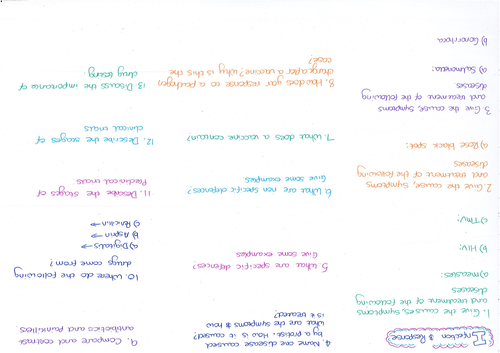 Infection & Response
1. Give the causes, symptoms
and treatment of the following
diseases
a) Measles:
b) HIV:
c) TMV:
2. Give the cause, symptoms
and treatment of the following
diseases
a) Rose black spot:
3. Give the cause, symptoms
and treatment of the following
diseases
a) Salmonella:
b) Gonorrhoea
4. Name one disease caused
by protist. How is it caused?
What are the symptoms & how
is it treated?
5. What are specific defences?
Give some examples
6. What are non specific defences?
Give some examples
7. What does a vaccine contain?
8. How does your response to a pathogen
change after a vaccine? Why is this the
case?
9. Compare and contrast
antibiotics and painkillers
10. Where do the following
drugs come from?
a) Digitalis →
b) Aspirin →
c) Penicillin →
11. Describe the stages of
Preclinical trials
12. Describe the stages of
clinical trials
13. Discuss the importance of
drug testing.